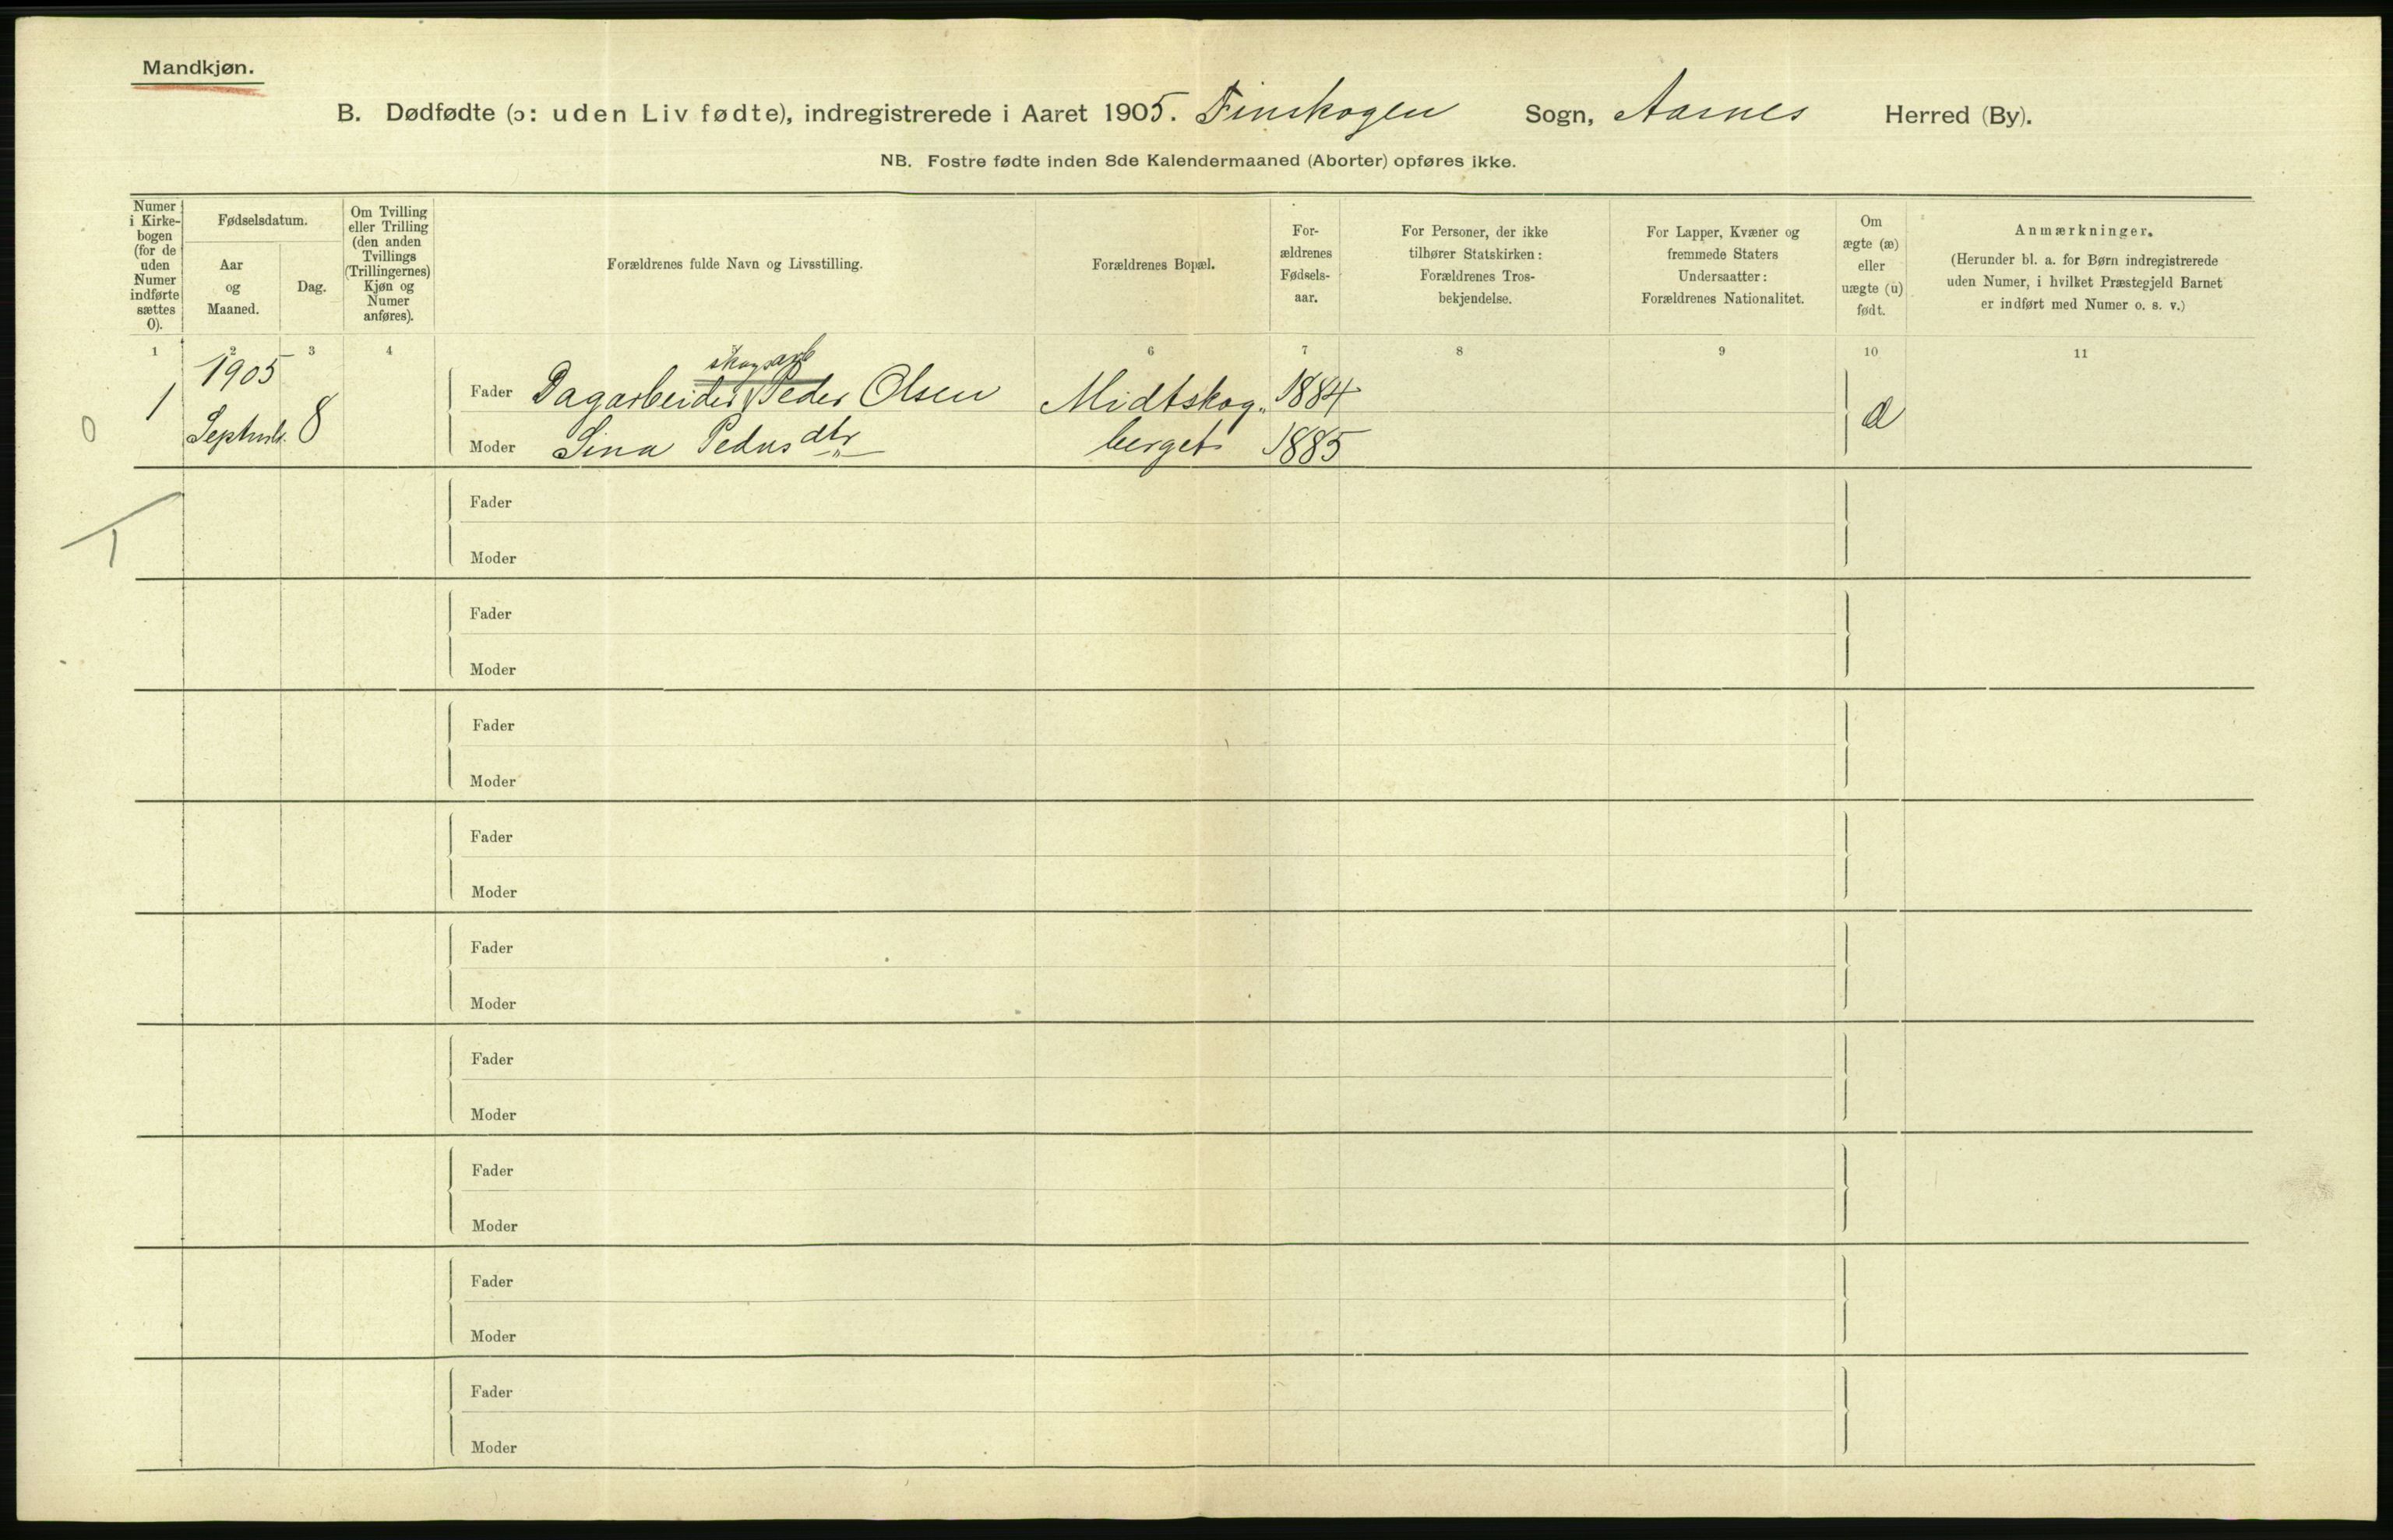 Mandkjøn.
B. Dødfødte (ɔ: uden Liv fødte), indregistrerede i Aaret 1905. Finskogen Sogn, Aasnes Herred (By).
NB. Fostre fødte inden 8de Kalendermaaned (Aborter) opføres ikke.
Numer i Kirke-bogen (for de uden Numer indførte sættes 0).
Fødselsdatum.
Aar og Maaned.
Dag.
Om Tvilling eller Trilling (den anden Tvillings (Trillingernes) Kjøn og Numer anføres).
Forældrenes fulde Navn og Livsstilling.
Forældrenes Bopæl.
For-ældrenes Fødsels-aar.
For Personer, der ikke tilhører Statskirken: Forældrenes Tros-bekjendelse.
For Lapper, Kvæner og fremmede Staters Undersaatter: Forældrenes Nationalitet.
Om ægte (æ) eller uægte (u) født.
Anmærkninger.
(Herunder bl. a. for Børn indregistrerede uden Numer, i hvilket Præstegjeld Barnet er indført med Numer o. s. v.)
1 2 3 4 6 7 8 9 10 11
1905
skogsarb
1 Fader Dagarbeider Peder Olsen Midtskog„ 1884
0 Septmb. 8 æ
Moder Sina Pedersdtr„ berget 1885
Fader
Moder
Fader
Moder
Fader
Moder
Fader
Moder
Fader
Moder
Fader
Moder
Fader
Moder
Fader
Moder
Fader
Moder